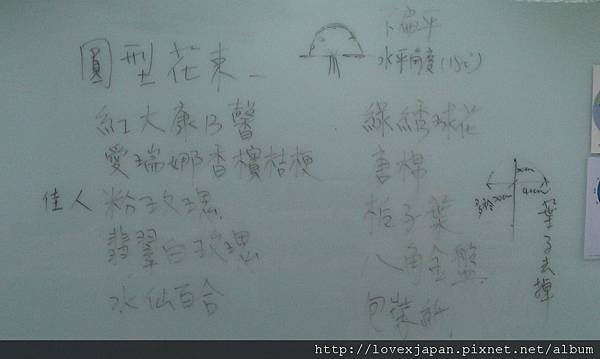 圓型花束
下扁平
水平角度(180°)
紅大康乃馨
愛瑞娜香檳桔梗
佳人粉玫瑰
翡翠白玫瑰
水仙百合
綠繡球花
書棉
梔子葉
八角金盤
包裝紙
葉子去掉
http://lovexjapan.pixnet.net/album